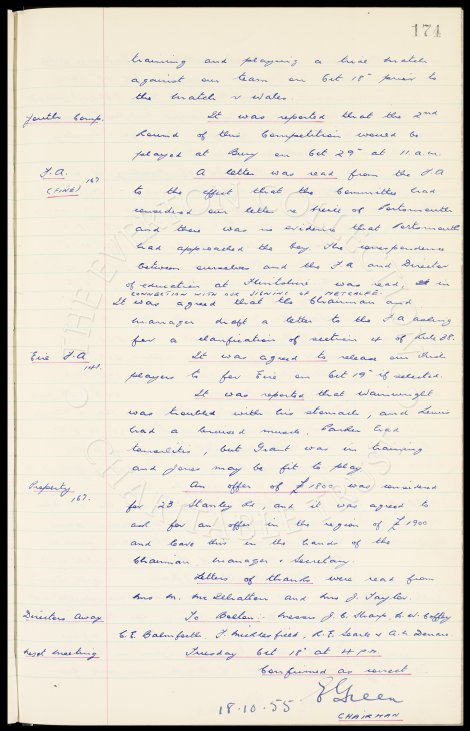 174
training and playing a trial match
against our team on Oct 18th prior to
the match v Wales.
Youth Comp. It was reported that the 2nd
Round of this Competition would be
played at Bury on Oct 29th at 11 a.m.
F.A. A letter was read from the F.A
(FINE) 167 to the effect that the Committee had
considered our letter re of Portsmouth
and there was no evidence that Portsmouth
had approached the boy. The correspondence
between ourselves and the F.A and Director
of education at Flintshire was read, in
CONNECTION WITH OUR SIGNING OF METCALFE.
It was agreed that the Chairman and
manager draft a letter to the F.A asking
for a clarification of section 4 of Rule 38.
Eire F.A It was agreed to release our Irish
141. players to for Eire on Oct 19th if selected.
It was reported that Wainwright
was troubled with his stomach, and Lewis
had a bruised muscle. Parker had
tonsilitis, but Grant was in training
and Jones may be fit to play
Property 167. An offer of £1800 was considered
for 23 Stanley Rd, and it was agreed to
ask for an offer in the region of £1900
and leave this in the hands of the
Chairman, manager & Secretary.
Letters of thanks were read from
Mrs M. McIlhatton and Mrs J. Taylor.
Directors Away To Bolton: Messrs J. C. Sharp R. W. Coffey
C. E. Balmforth, F. Micklesfield, R. E. Searle & A. L. Denaro.
Next meeting Tuesday Oct 18th at 4 p.m.
Confirmed as correct
18.10.55 E Green
CHAIRMAN
© THE EVERTON COLLECTION
CHARITABLE TRUST